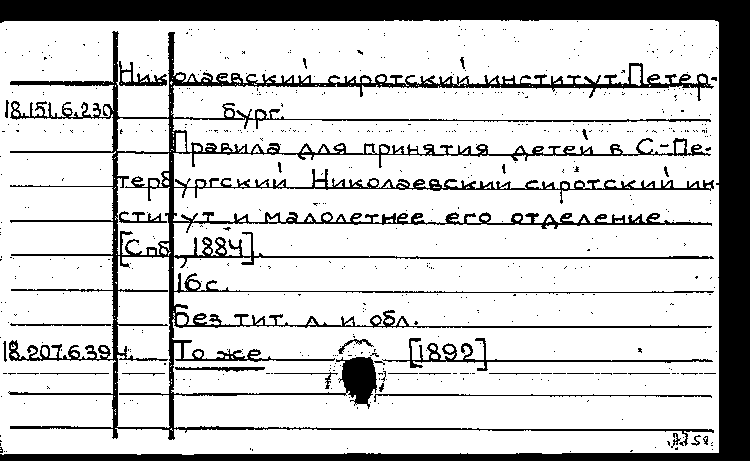 Николаевский сиротский институт. Петер-
18.151.6.230 бург.
Правила для принятия детей в С.-Пе-
тербургский Николаевский сиротский ин-
ститут и малолетнее его отделение.
[Спб, 1884].
16 с.
Без тит. л. и обл.
18.207.6.394. То же. [1892]